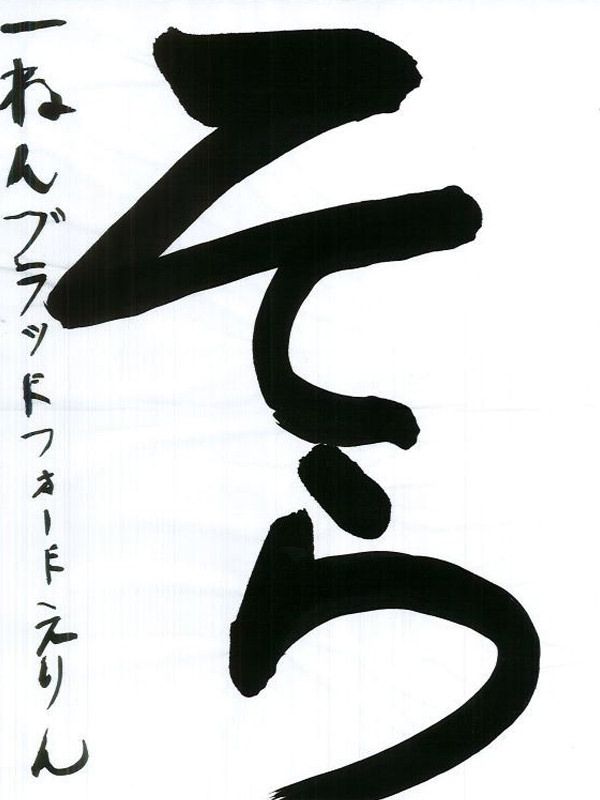 そら
一ねんブラッドフォードえりん